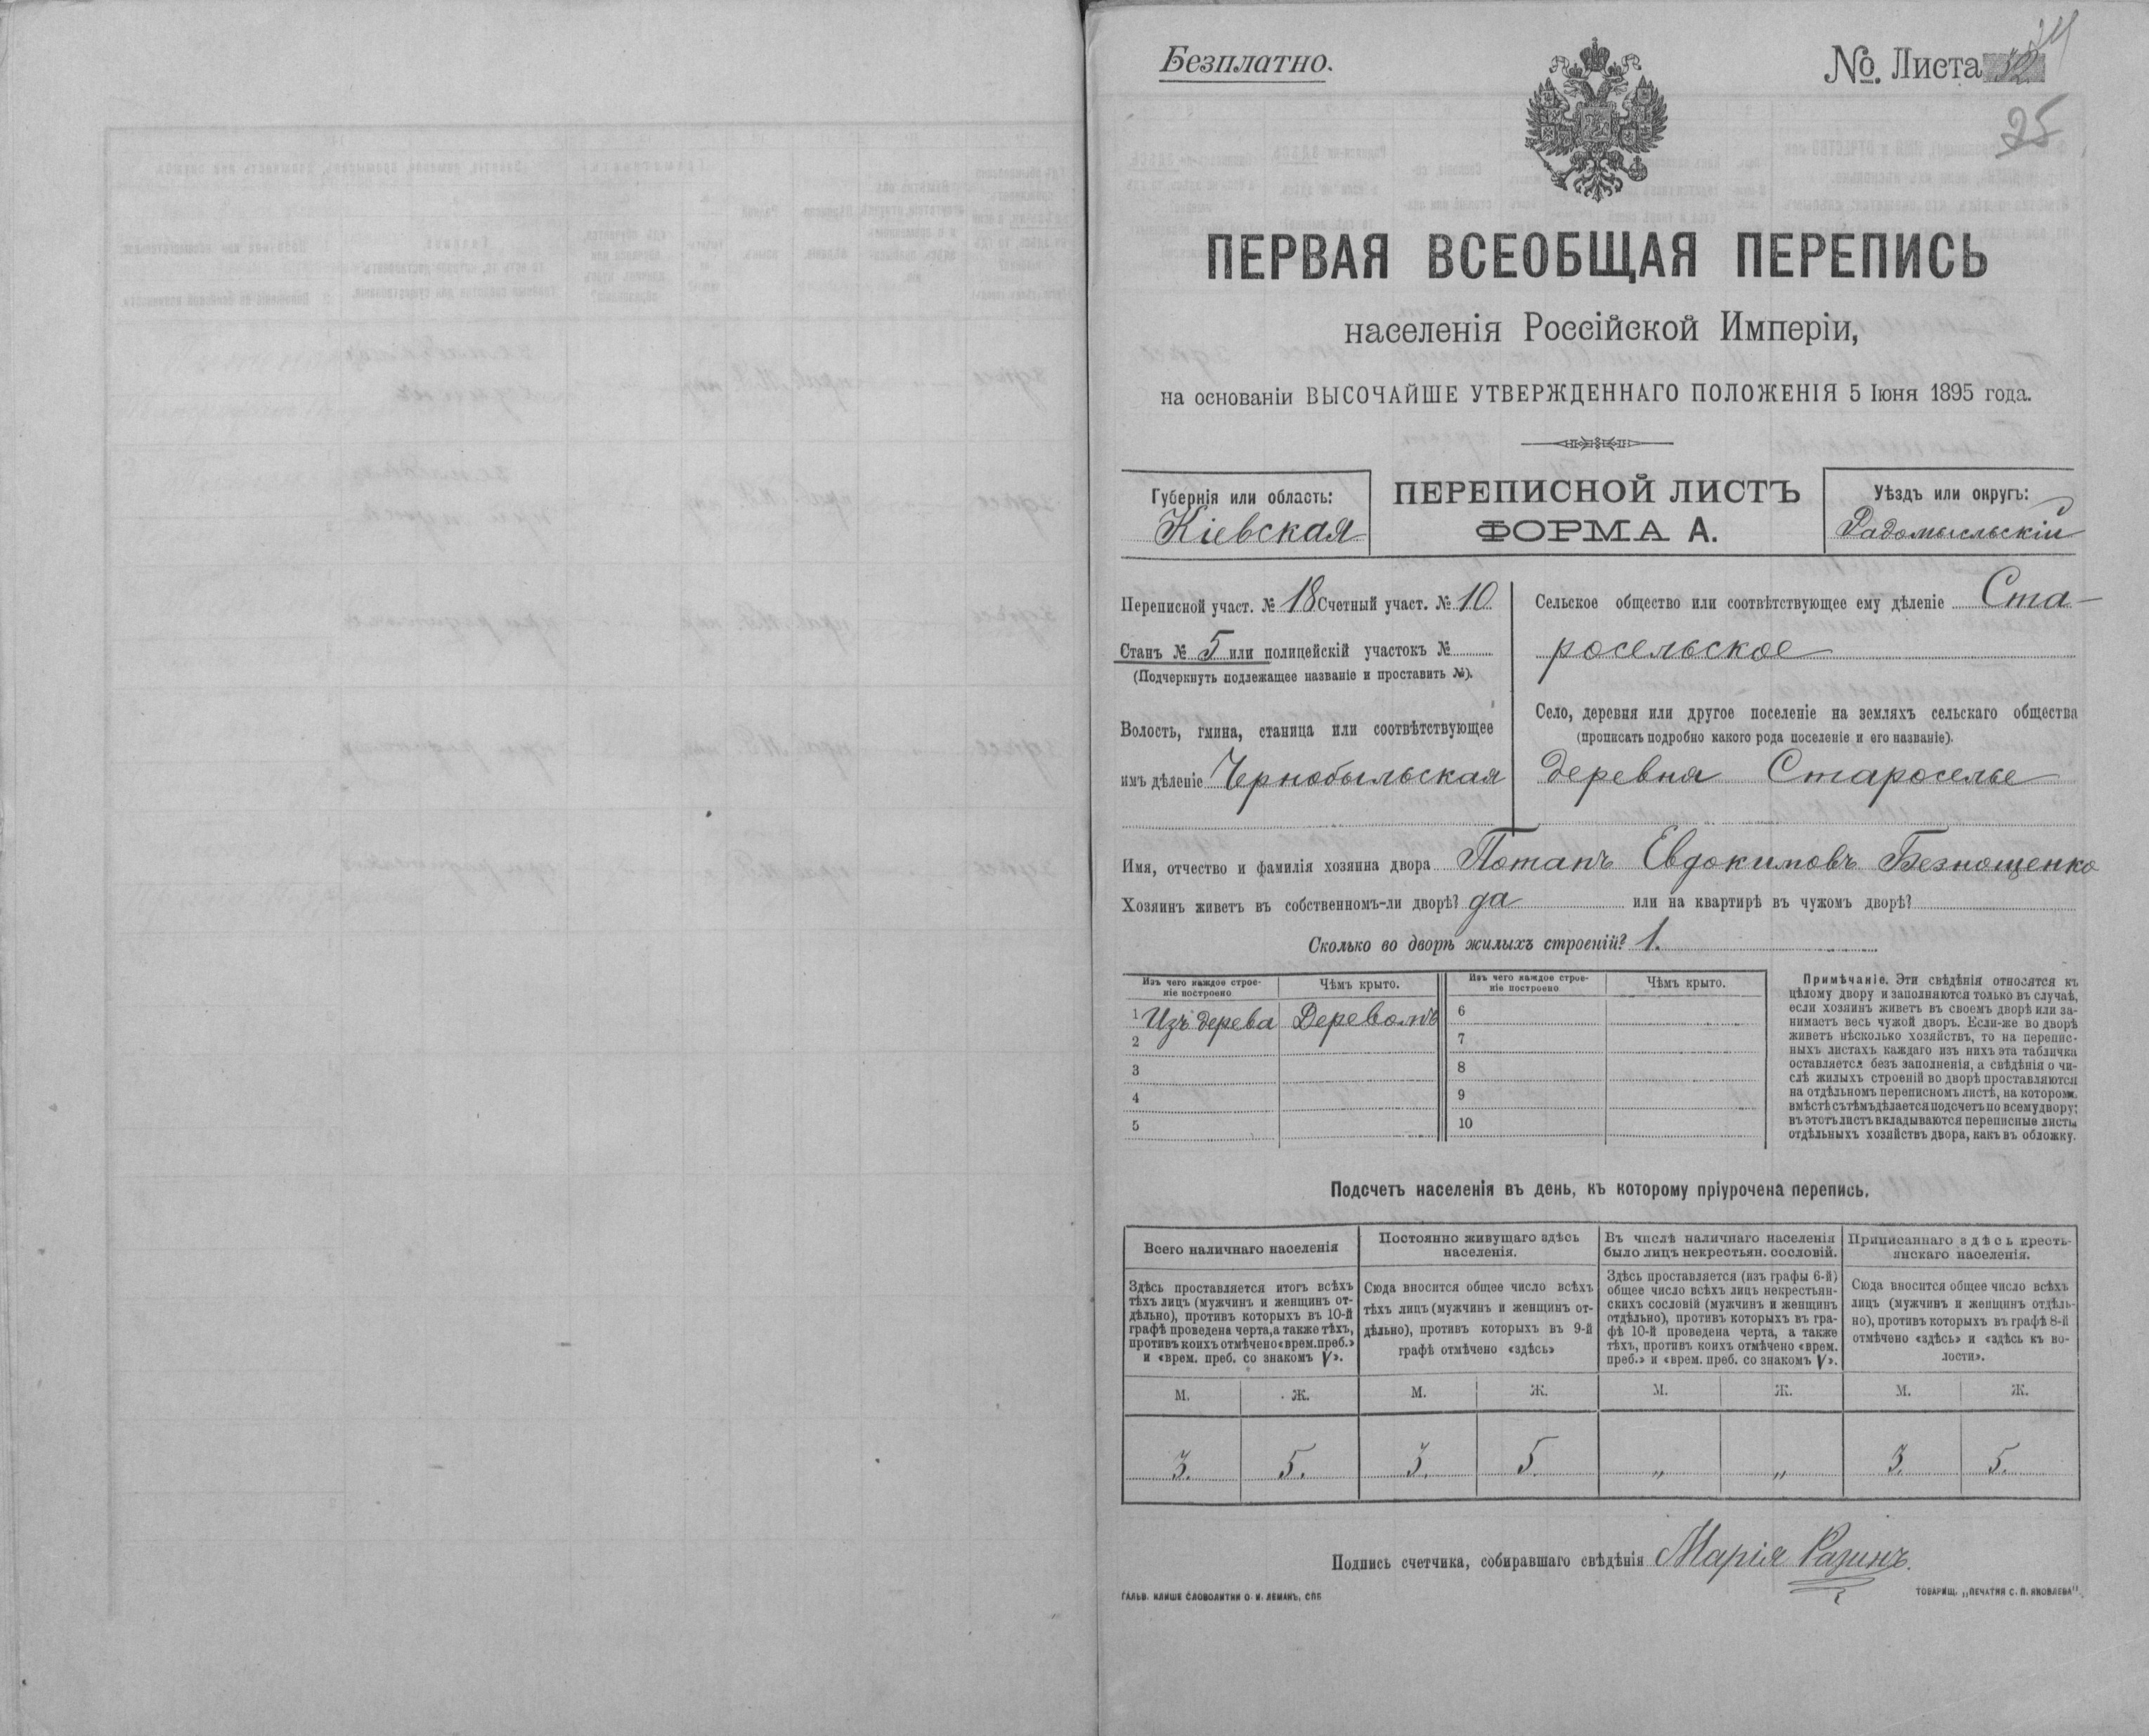 Безплатно.
№ Листа
25
ПЕРВАЯ ВСЕОБЩАЯ ПЕРЕПИСЬ
населенія Россійской Имперіи,
на основаніи ВЫСОЧАЙШЕ УТВЕРЖДЕННАГО ПОЛОЖЕНІЯ 5 Іюня 1895 года.
Губернія или область:
Кіевская
ПЕРЕПИСНОЙ ЛИСТЪ
ФОРМА А.
Уѣздъ или округъ:
Радомысльскій
Переписной участ. № 18 Счетный участ. № 10
Станъ № 5 или полицейскій участокъ №
(Подчеркнуть подлежащее названіе и проставить №).
Волость, гмина, станица или соотвѣтствующее
имъ дѣленіе Чернобыльская
Сельское общество или соотвѣтствующее ему дѣленіе Ста-
росельское
Село, деревня или другое поселеніе на земляхъ сельскаго общества
(прописать подробно какого рода поселеніе и его названіе).
деревня Староселье
Имя, отчество и фамилія хозяина двора Потапъ Евдокимовъ Безнощенко
Хозяинъ живетъ въ собственномъ-ли дворѣ? да или на квартирѣ въ чужомъ дворѣ?
Сколько во дворѣ жилыхъ строеній? 1.
Изъ чего каждое строе-
ніе построено
Чѣмъ крыто.
Изъ чего каждое строе-
ніе построено
Чѣмъ крыто.
1 Изъ дерева Деревомъ 6
2 7
3 8
4 9
5 10
Примѣчаніе. Эти свѣдѣнія относятся къ
цѣлому двору и заполняются только въ случаѣ,
если хозяинъ живетъ въ своемъ дворѣ или за-
нимаетъ весь чужой дворъ. Если-же во дворѣ
живетъ нѣсколько хозяйствъ, то на перепис-
ныхъ листахъ каждаго изъ нихъ эта табличка
оставляется безъ заполненія, а свѣдѣнія о чи-
слѣ жилыхъ строеній во дворѣ проставляются
на отдѣльномъ переписномъ листѣ, на которомъ
вмѣстѣ съ тѣмъ дѣлается подсчетъ по всему двору;
въ этотъ листъ вкладываются переписные листы
отдѣльныхъ хозяйствъ двора, какъ въ обложку.
Подсчетъ населенія въ день, къ которому пріурочена перепись.
Всего наличнаго населенія
Здѣсь проставляется итогъ всѣхъ
тѣхъ лицъ (мужчинъ и женщинъ от-
дѣльно), противъ которыхъ въ 10-й
графѣ проведена черта, а также тѣхъ,
противъ коихъ отмѣчено «врем. преб.»
и «врем. преб. со знакомъ V».
Постоянно живущаго здѣсь
населенія.
Сюда вносится общее число всѣхъ
тѣхъ лицъ (мужчинъ и женщинъ от-
дѣльно), противъ которыхъ въ 9-й
графѣ отмѣчено «здѣсь»
Въ числѣ наличнаго населенія
было лицъ некрестьян. сословій.
Здѣсь проставляется (изъ графы 6-й)
общее число всѣхъ лицъ некрестьян-
скихъ сословій (мужчинъ и женщинъ
отдѣльно), противъ которыхъ въ гра-
фѣ 10-й проведена черта, а также
тѣхъ, противъ коихъ отмѣчено «врем.
преб.» и «врем. преб. со знакомъ V».
Приписаннаго здѣсь кресть-
янскаго населенія.
Сюда вносится общее число всѣхъ
лицъ (мужчинъ и женщинъ отдѣль-
но), противъ которыхъ въ графѣ 8-й
отмѣчено «здѣсь» и «здѣсь къ во-
лости».
М. Ж. М. Ж. М. Ж. М. Ж.
3. 5. 3. 5. „ „ 3. 5.
Подпись счетчика, собиравшаго свѣдѣнія Марія
ГАЛЬВ. КЛИШЕ СЛОВОЛИТНИ О. И. ЛЕМАНЪ, СПБ
ТОВАРИЩ. „ПЕЧАТНЯ С. П. ЯКОВЛЕВА"